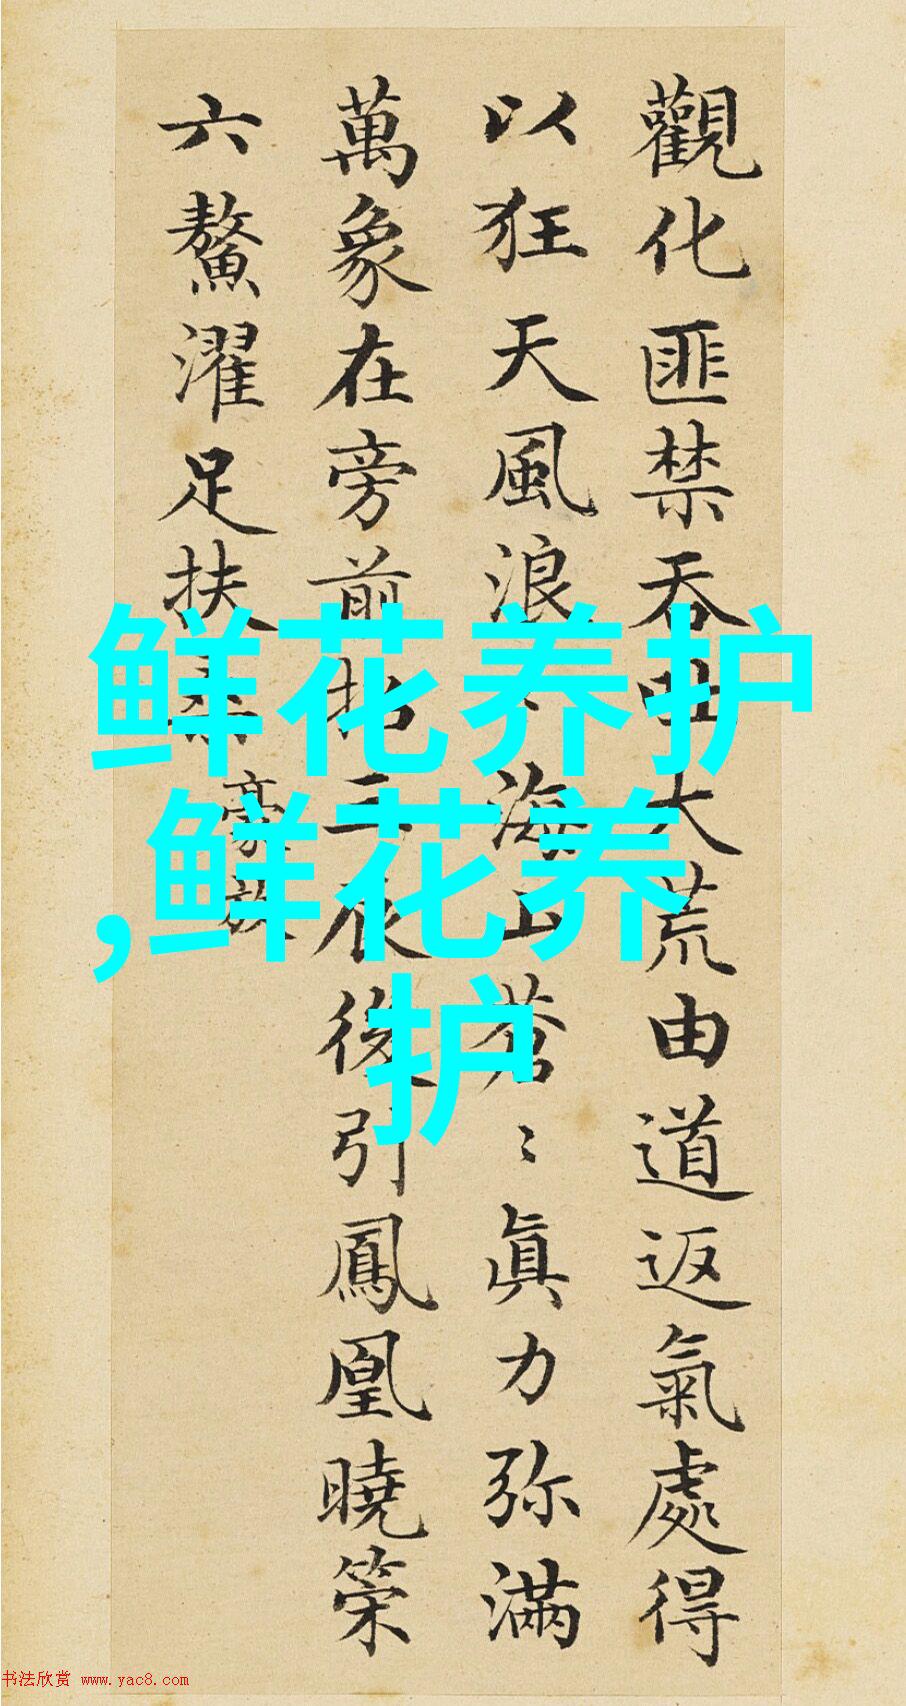 觀化匪禁吞吐大荒由道返氣處得
以狂天風浪浪海山蒼〻真力弥滿
萬象在旁前招三辰後引鳳凰曉策
六鰲濯足扶桑
豪放
鲜花养护
,鲜花养
护
书法欣赏 www.yac8.com